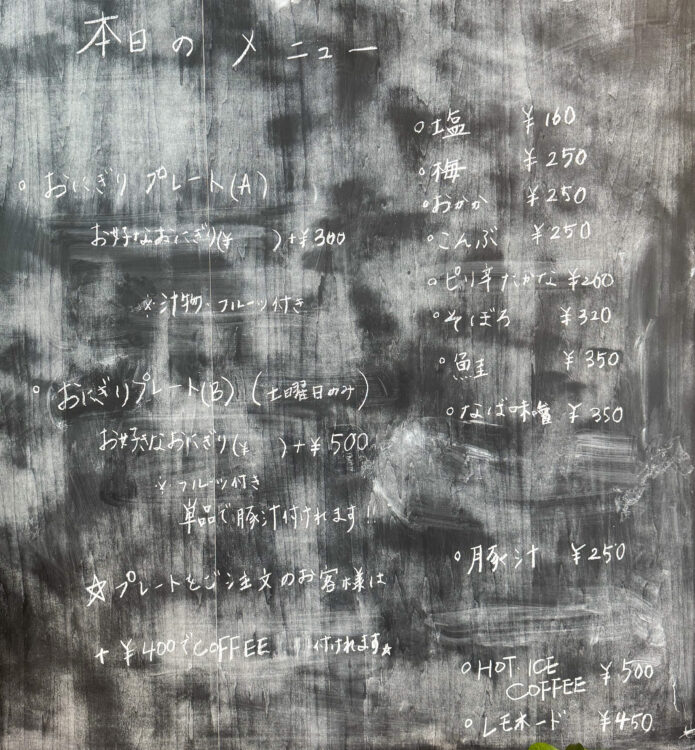 本日のメニュー
○ おにぎりプレート(A)
お好なおにぎり(¥　　)+¥300
※汁物・フルーツ付き
○ おにぎりプレート(B) (土曜日のみ)
お好きなおにぎり(¥　　)+¥500
※フルーツ付き
単品で豚汁付けれます!!
☆プレートをご注文のお客様は
+¥400でCOFFEE 付けれます☆
○塩 ¥160
○梅 ¥250
○おかか ¥250
○こんぶ ¥250
○ピリ辛たかな ¥260
○そぼろ ¥320
○鮭 ¥350
○なば味噌 ¥350
○豚汁 ¥250
○HOT ICE
COFFEE ¥500
○レモネード ¥450